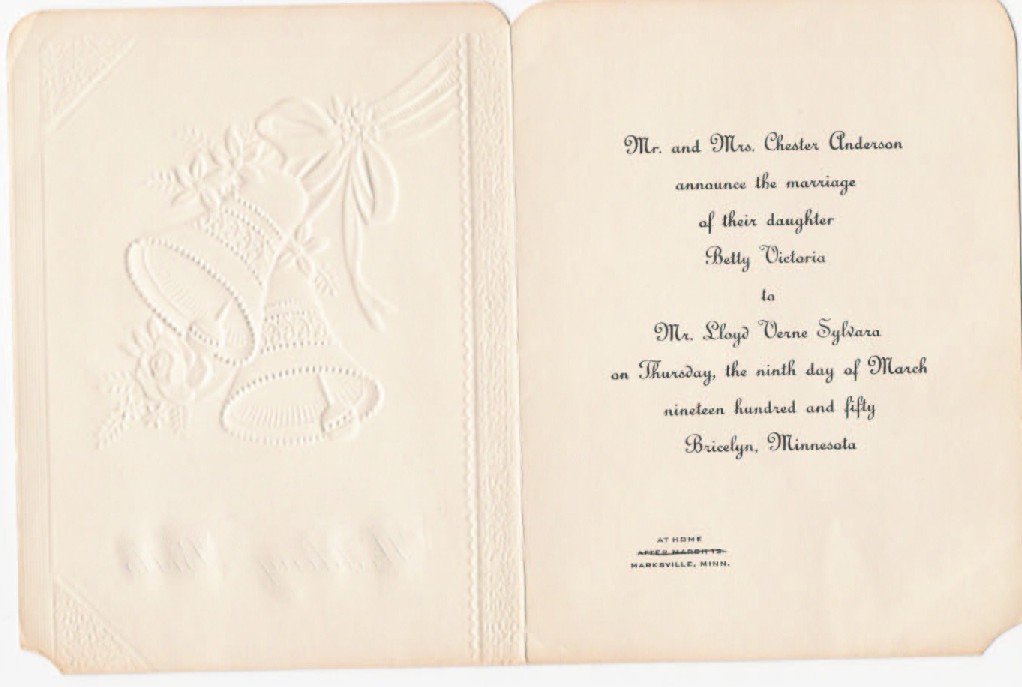 Mr. and Mrs. Chester Anderson
announce the marriage
of their daughter
Betty Victoria
to
Mr. Lloyd Verne Sylvara
on Thursday, the ninth day of March
nineteen hundred and fifty
Bricelyn, Minnesota
AT HOME
AFTER
MARKSVILLE, MINN.